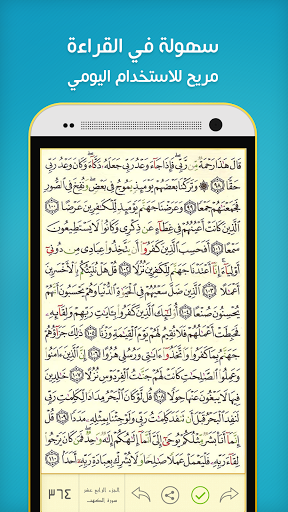 سهولة في القراءة
مريح للاستخدام اليومي
قَالَ هَٰذَا رَحْمَةٌ مِّن رَّبِّي ۖ فَإِذَا جَآءَ وَعْدُ رَبِّي جَعَلَهُۥ دَكَّآءَ ۖ وَكَانَ وَعْدُ رَبِّي
حَقًّا ٩٨ ۞ وَتَرَكْنَا بَعْضَهُمْ يَوْمَئِذٍ يَمُوجُ فِي بَعْضٍ ۖ وَنُفِخَ فِي ٱلصُّورِ
فَجَمَعْنَٰهُمْ جَمْعًا ٩٩ وَعَرَضْنَا جَهَنَّمَ يَوْمَئِذٍ لِّلْكَٰفِرِينَ عَرْضًا ١٠٠
ٱلَّذِينَ كَانَتْ أَعْيُنُهُمْ فِي غِطَآءٍ عَن ذِكْرِي وَكَانُوا۟ لَا يَسْتَطِيعُونَ
سَمْعًا ١٠١ أَفَحَسِبَ ٱلَّذِينَ كَفَرُوٓا۟ أَن يَتَّخِذُوا۟ عِبَادِي مِن دُونِيٓ
أَوْلِيَآءَ ۚ إِنَّآ أَعْتَدْنَا جَهَنَّمَ لِلْكَٰفِرِينَ نُزُلًا ١٠٢ قُلْ هَلْ نُنَبِّئُكُم بِٱلْأَخْسَرِينَ
أَعْمَٰلًا ١٠٣ ٱلَّذِينَ ضَلَّ سَعْيُهُمْ فِي ٱلْحَيَوٰةِ ٱلدُّنْيَا وَهُمْ يَحْسَبُونَ أَنَّهُمْ
يُحْسِنُونَ صُنْعًا ١٠٤ أُو۟لَٰٓئِكَ ٱلَّذِينَ كَفَرُوا۟ بِـَٔايَٰتِ رَبِّهِمْ وَلِقَآئِهِۦ
فَحَبِطَتْ أَعْمَٰلُهُمْ فَلَا نُقِيمُ لَهُمْ يَوْمَ ٱلْقِيَٰمَةِ وَزْنًا ١٠٥ ذَٰلِكَ جَزَآؤُهُمْ
جَهَنَّمُ بِمَا كَفَرُوا۟ وَٱتَّخَذُوٓا۟ ءَايَٰتِي وَرُسُلِي هُزُوًا ١٠٦ إِنَّ ٱلَّذِينَ ءَامَنُوا۟
وَعَمِلُوا۟ ٱلصَّٰلِحَٰتِ كَانَتْ لَهُمْ جَنَّٰتُ ٱلْفِرْدَوْسِ نُزُلًا ١٠٧ خَٰلِدِينَ
فِيهَا لَا يَبْغُونَ عَنْهَا حِوَلًا ١٠٨ قُل لَّوْ كَانَ ٱلْبَحْرُ مِدَادًا لِّكَلِمَٰتِ رَبِّي
لَنَفِدَ ٱلْبَحْرُ قَبْلَ أَن تَنفَدَ كَلِمَٰتُ رَبِّي وَلَوْ جِئْنَا بِمِثْلِهِۦ مَدَدًا ١٠٩ قُلْ
إِنَّمَآ أَنَا۠ بَشَرٌ مِّثْلُكُمْ يُوحَىٰٓ إِلَيَّ أَنَّمَآ إِلَٰهُكُمْ إِلَٰهٌ وَٰحِدٌ ۖ فَمَن كَانَ يَرْجُوا۟
لِقَآءَ رَبِّهِۦ فَلْيَعْمَلْ عَمَلًا صَٰلِحًا وَلَا يُشْرِكْ بِعِبَادَةِ رَبِّهِۦٓ أَحَدًۢا ١١٠
الجزء الرابع عشر
سورة الكهف
٣٦٤